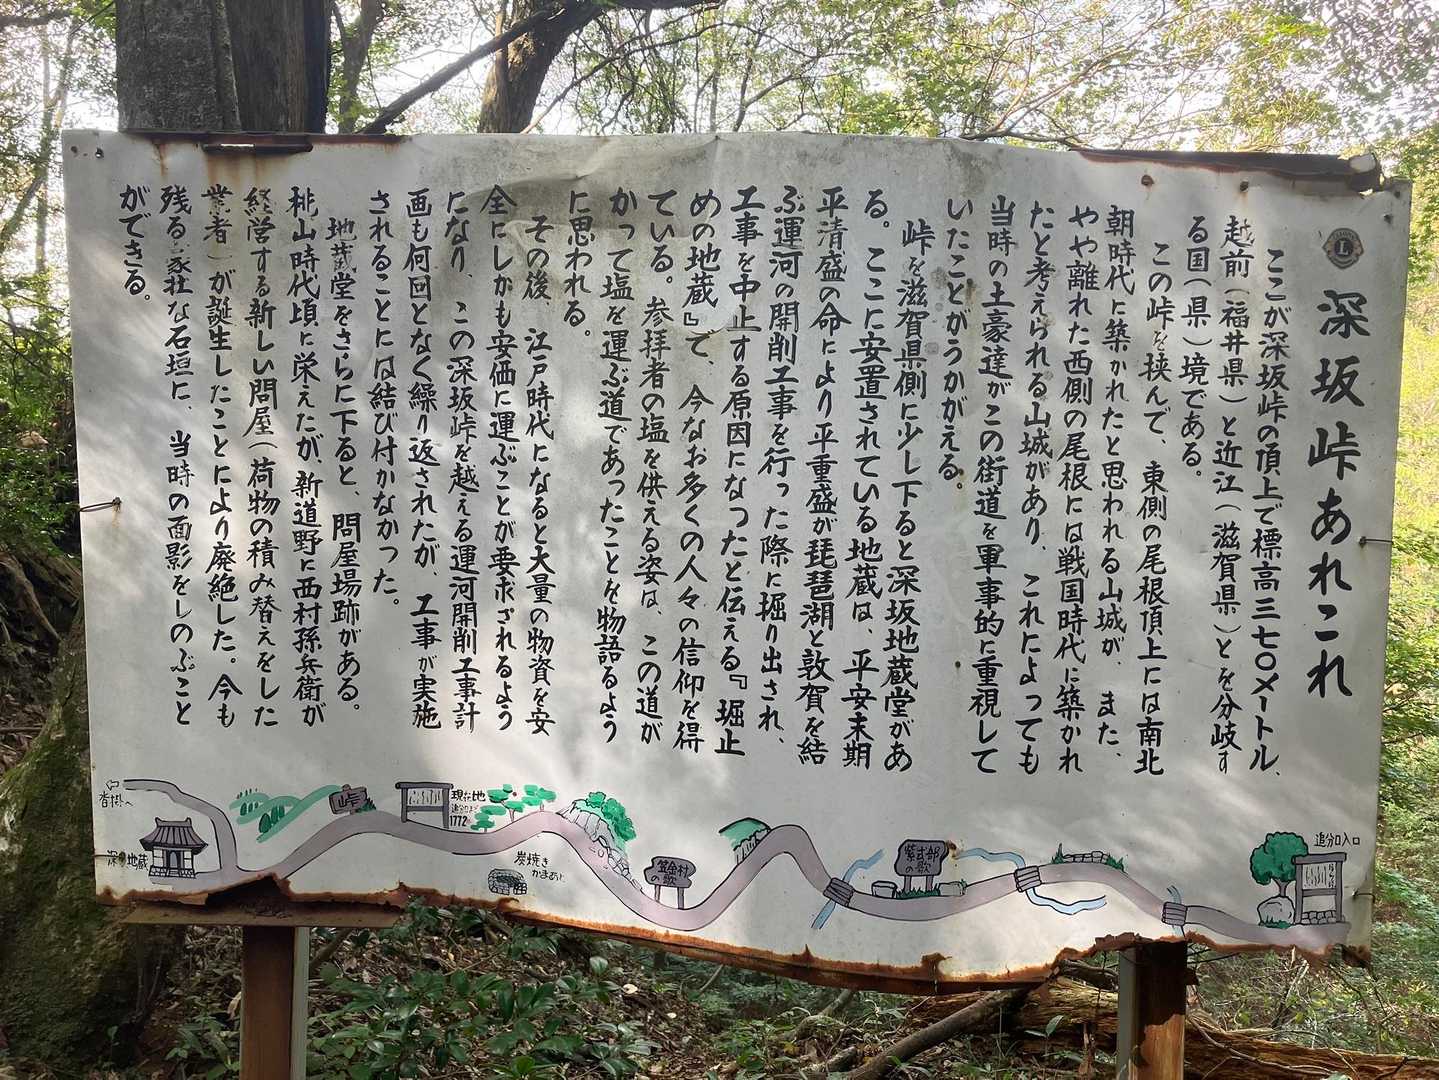 深坂峠あれこれ
ここが深坂峠の頂上で標高三七〇メートル、
越前(福井県)と近江(滋賀県)とを分岐す
る国(県)境である。
この峠を挟んで、東側の尾根頂上には南北
朝時代に築かれたと思われる山城が、また、
やや離れた西側の尾根には戦国時代に築かれ
たと考えられる山城があり、これによっても
当時の土豪達がこの街道を軍事的に重視して
いたことがうかがえる。
峠を滋賀県側に少し下ると深坂地蔵堂があ
る。ここに安置されている地蔵は、平安末期
平清盛の命により平重盛が琵琶湖と敦賀を結
ぶ運河の開削工事を行った際に掘り出され、
工事を中止する原因になったと伝える『堀止
めの地蔵』で、今なお多くの人々の信仰を得
ている。参拝者の塩を供える姿は、この道が
かって塩を運ぶ道であったことを物語るよう
に思われる。
その後、江戸時代になると大量の物資を安
全にしかも安価に運ぶことが要求されるよう
になり、この深坂峠を越える運河開削工事計
画も何回となく繰り返されたが、工事が実施
されることには結び付かなかった。
地蔵堂をさらに下ると、問屋場跡がある。
桃山時代頃に栄えたが、新道野に西村孫兵衛が
経営する新しい問屋(荷物の積み替えをした
業者)が誕生したことにより廃絶した。今も
残る豪壮な石垣に、当時の面影をしのぶこと
ができる。
沓掛へ
深坂地蔵
峠
現在地
追分口まで
1772
炭焼き
かまあと
笠金村
の歌
紫式部
の歌
追分口入口